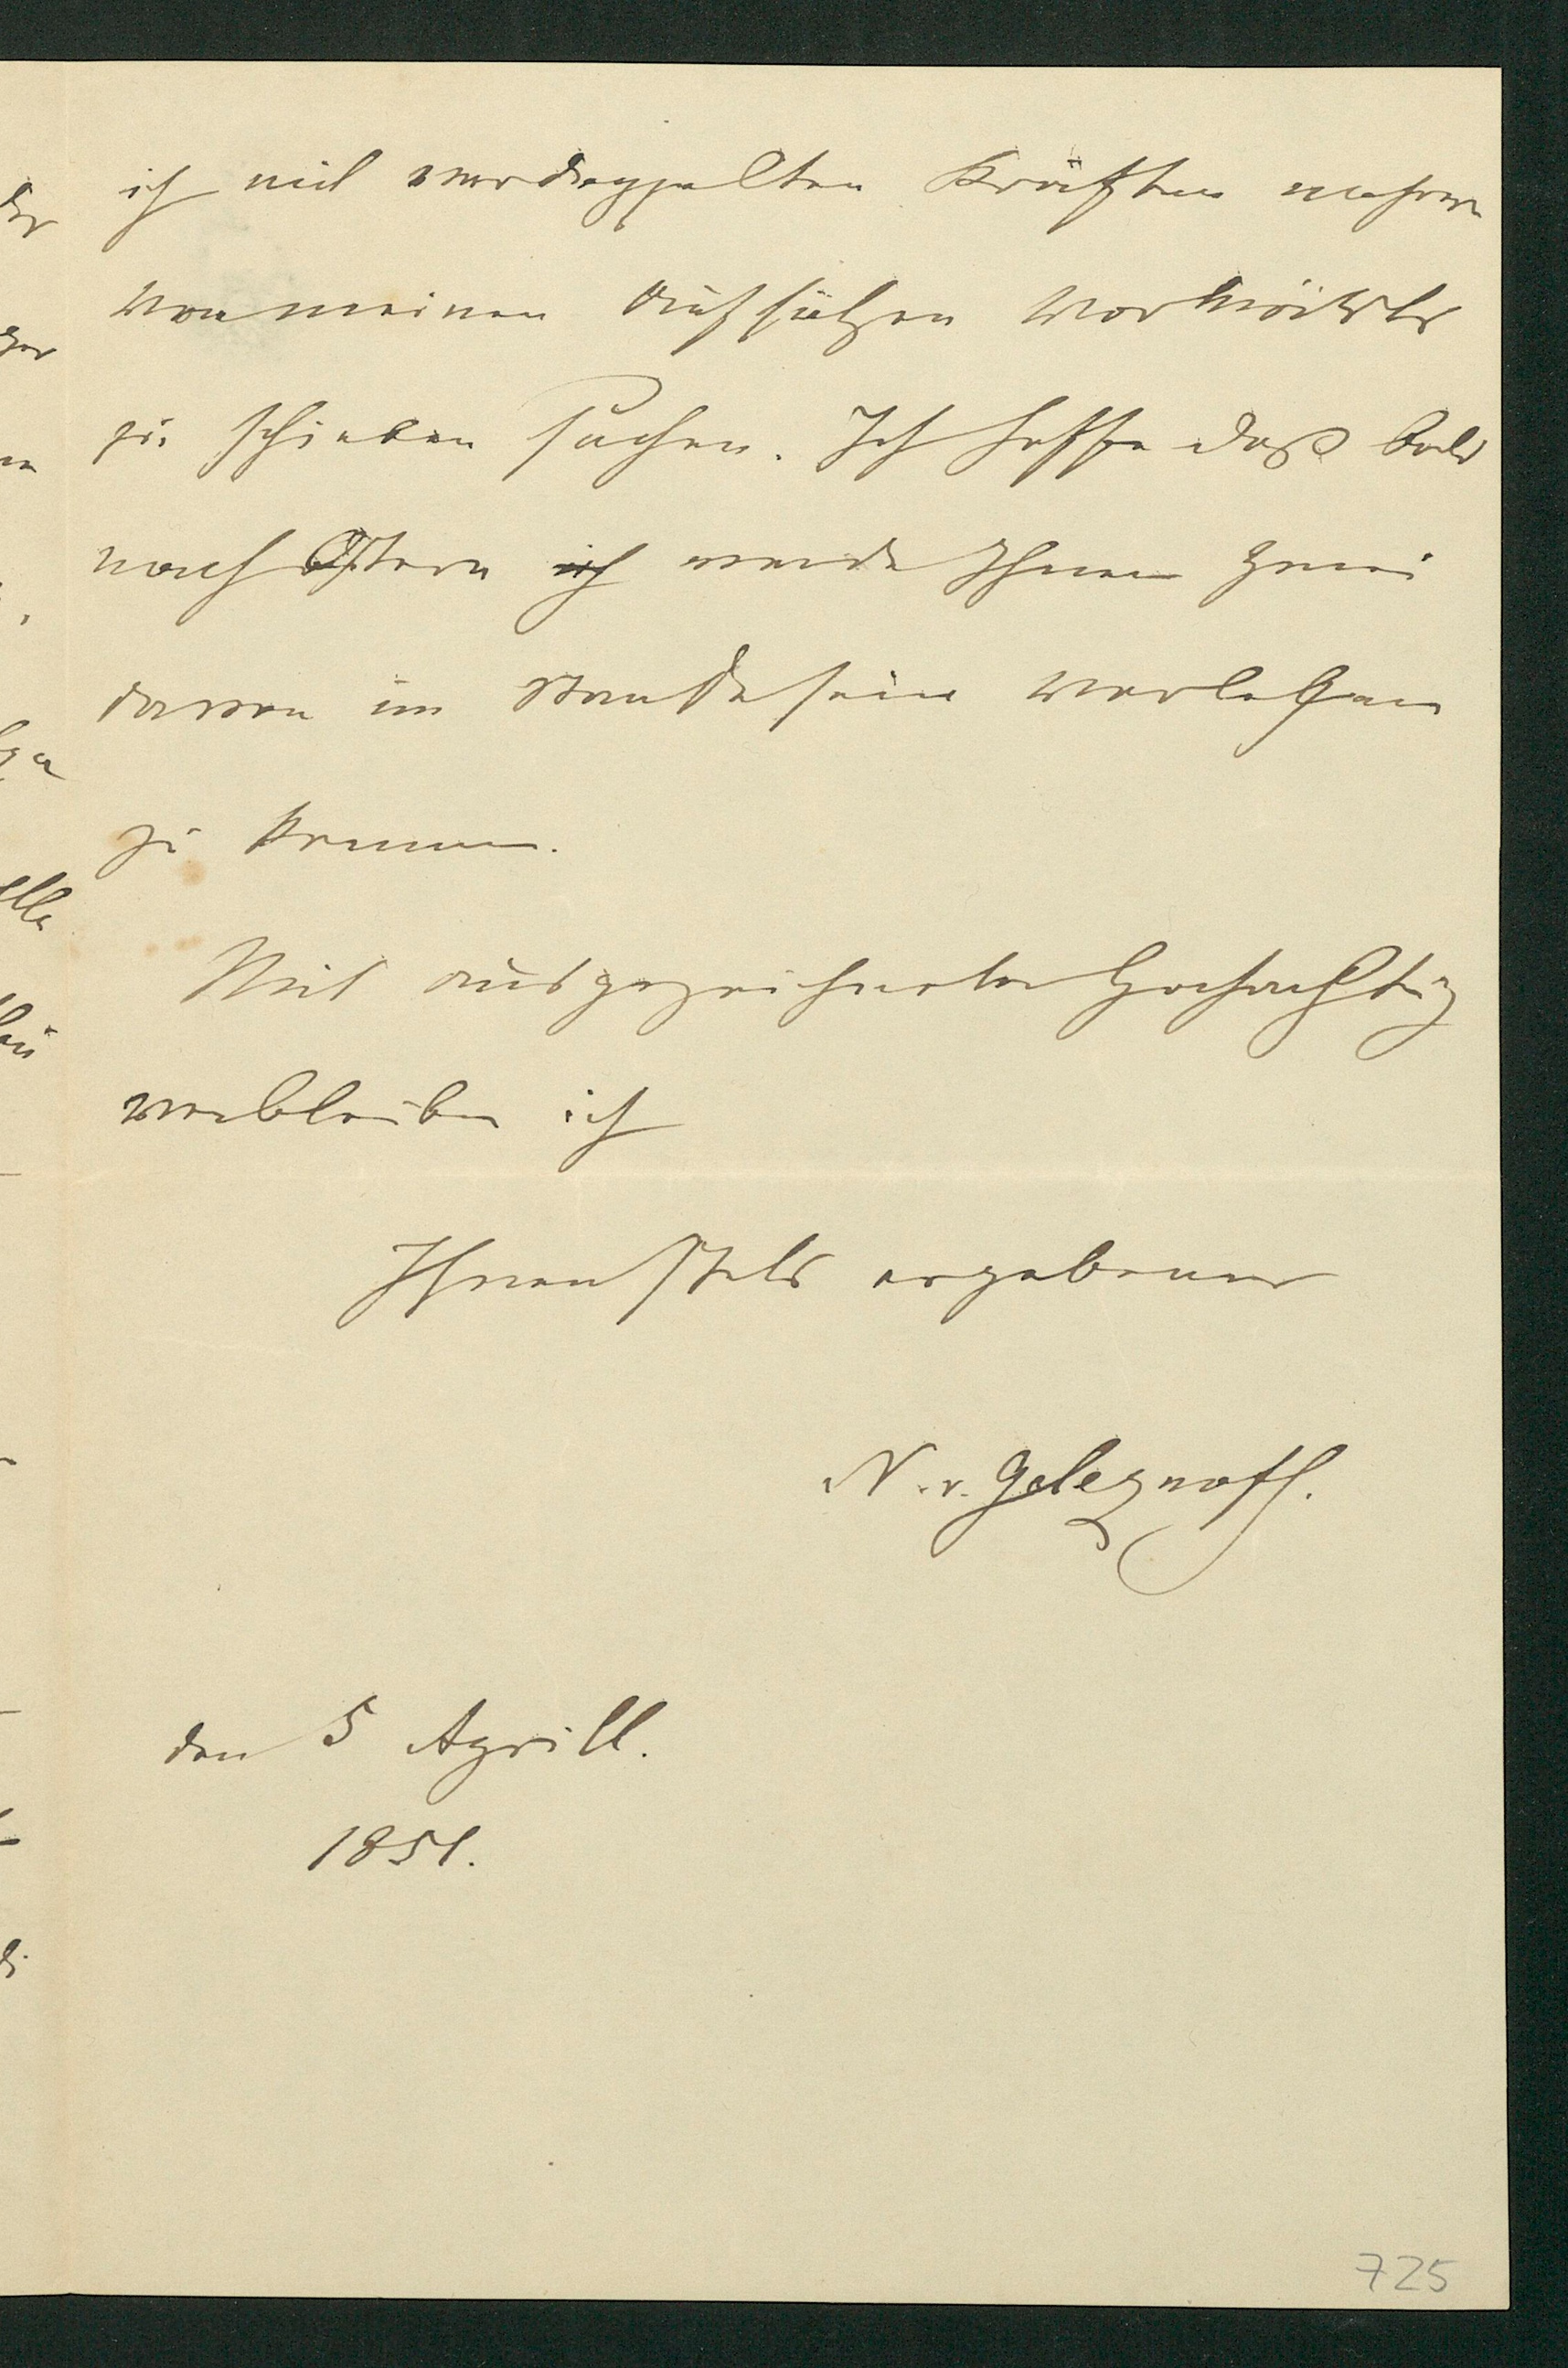 ich mit verdoppelten Kräften mehrere
von meinen Aufsätzen vorwärts
zu schieben suchen. Ich hoffe daß bald
nach Ostern ich werde Ihnen zwei
davon im Stande sein vorlegen
zu können.
Mit ausgezeichneter Hochachtung
verbleibe ich
Ihnen stets ergebener
N. v. Geleznoff.
den 5 Aprill.
1851.
725